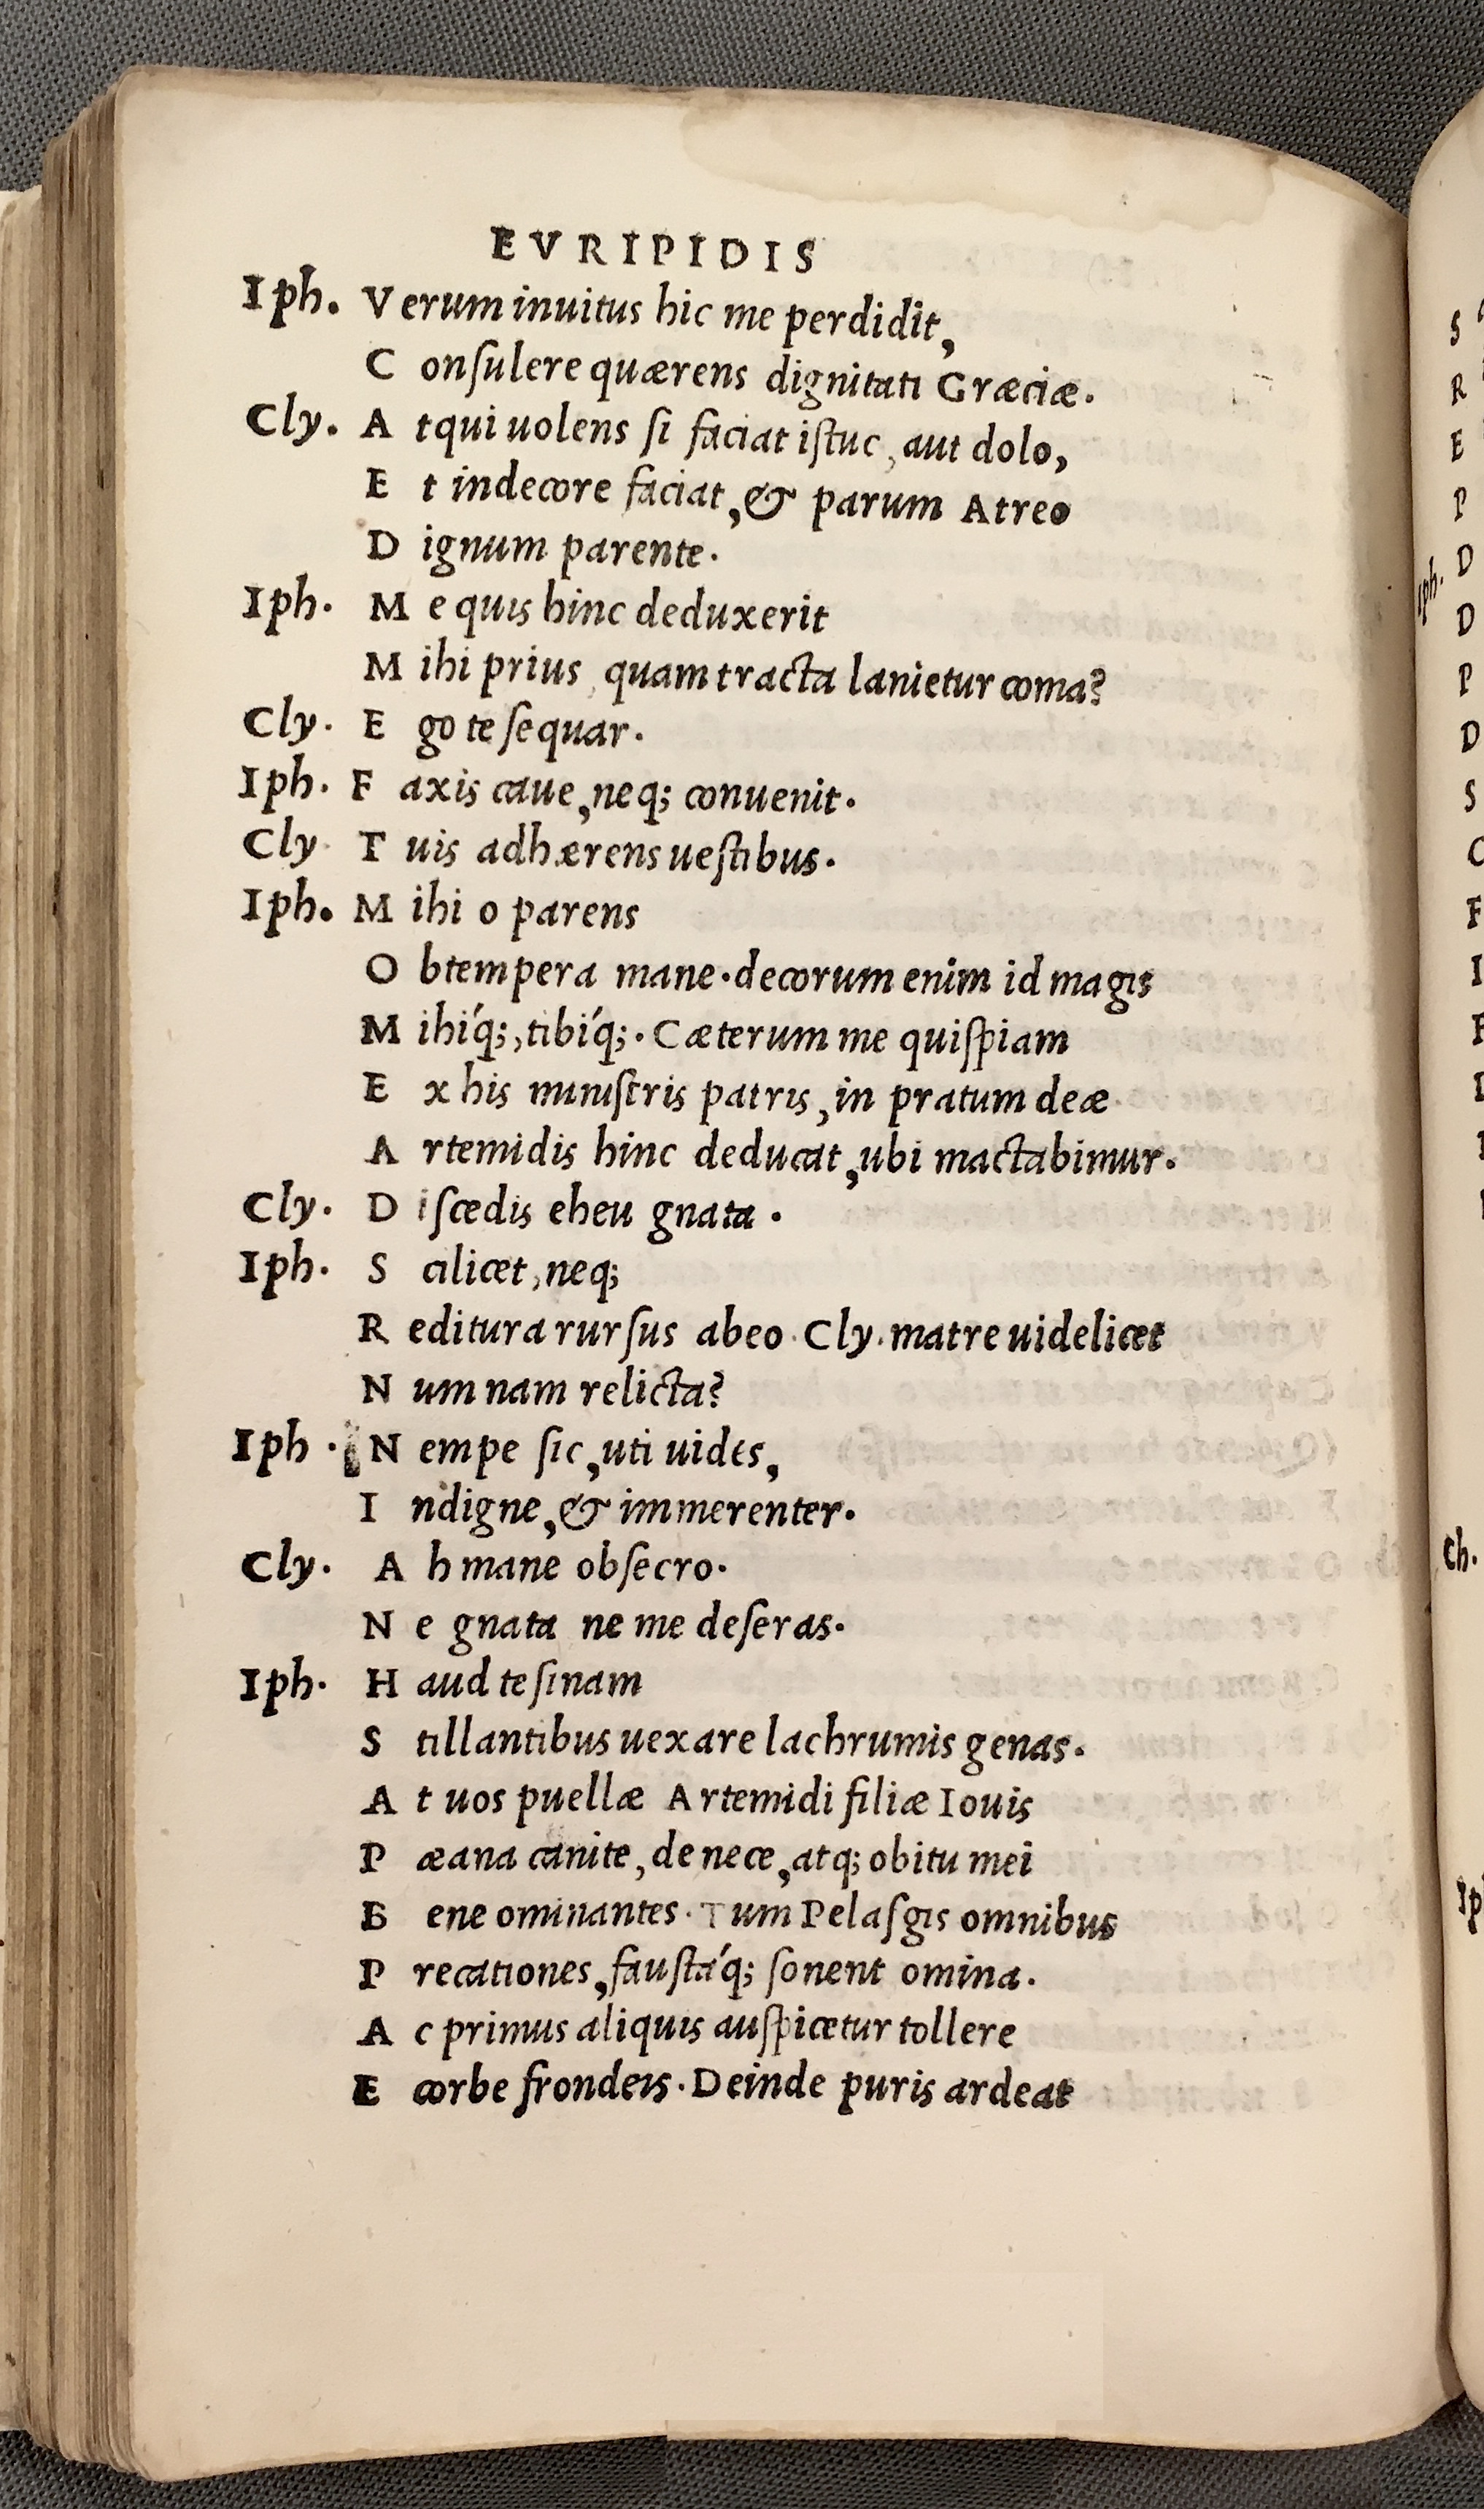 EVRIPIDIS
Iph. Verum inuitus hic me perdidit,
Conſulere quærens dignitati Græciæ.
Cly. Atqui uolens ſi faciat iſtuc, aut dolo,
Et indecore faciat, & parum Atreo
Dignum parente.
Iph. Me quis hinc deduxerit
Mihi prius, quam tracta lanietur coma?
Cly. Ego te ſequar.
Iph. Faxis caue, neq; conuenit.
Cly. Tuis adhærens ueſtibus.
Iph. Mihi o parens
Obtempera mane. decorum enim id magis
Mihiq́;, tibiq́;. Cæterum me quiſpiam
Ex his miniſtris patris, in pratum deæ
Artemidis hinc deducat, ubi mactabimur.
Cly. Diſcedis eheu gnata.
Iph. Scilicet, neq;
Reditura rurſus abeo. Cly. matre uidelicet
Num nam relicta?
Iph. Nempe ſic, uti uides,
Indigne, & immerenter.
Cly. Ah mane obſecro.
Ne gnata ne me deſeras.
Iph. Haud te ſinam
Stillantibus uexare lachrumis genas.
At uos puellæ Artemidi filiæ Iouis
Pæana canite, de nece, atq; obitu mei
Bene ominantes. Tum Pelaſgis omnibus
Precationes, fauſtáq; ſonent omina.
Ac primus aliquis auſpicetur tollere
E corbe frondeis. Deinde puris ardeat
S
R
E
P
Iph. D
D
P
D
S
C
F
I
Ch.
Ip